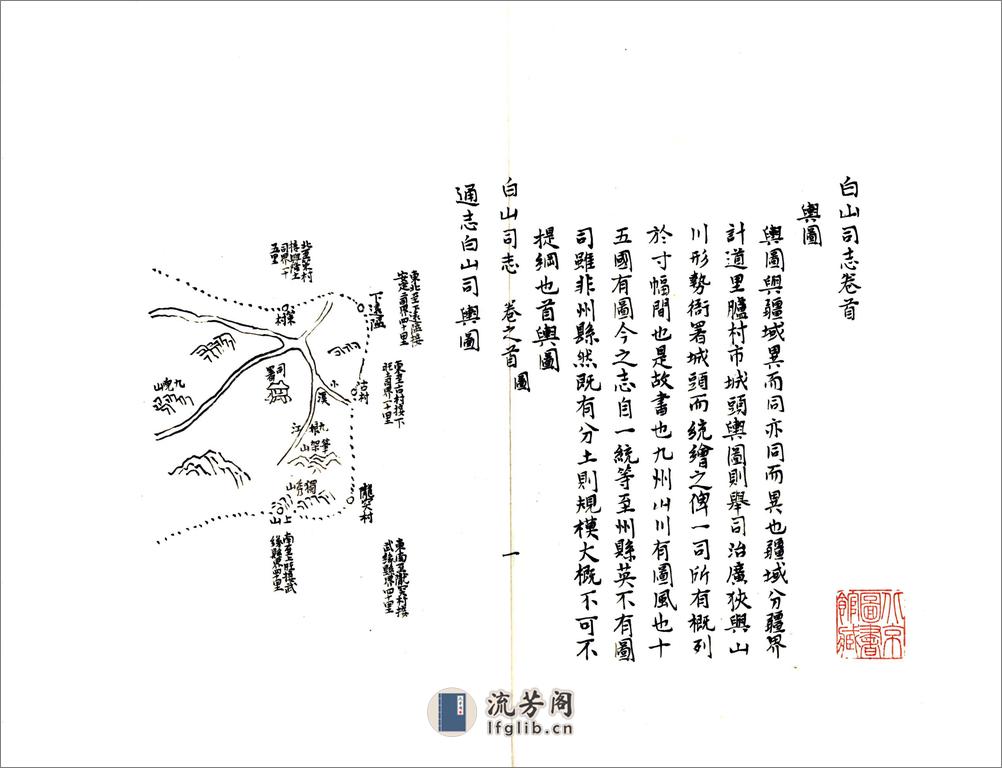 白山司志卷首
輿圖
輿圖與疆域異而同亦同而異也疆域分疆界
計道里臚村市城頭輿圖則舉司治廣狹與山
川形勢衙署城頭而統繪之俾一司所有概列
於寸幅間也是故書也九州川川有圖風也十
五國有圖今之志自一統等至州縣英不有圖
司雖非州縣然既有分土則規模大概不可不
提綱也首輿圖
北京圖書館藏
白山司志 卷之首 圖
一
通志白山司輿圖
東北至下遠隘接
安定司界四十里
下遠隘
東至古村接下
旺司界一十里
古村
隴突村
東南至隴突村接
武緣縣界四十里
村
司署
小溪
江
九
筆架山
獨秀山
南至上旺接武
緣縣界四十里
流芳阁
lfglib.cn